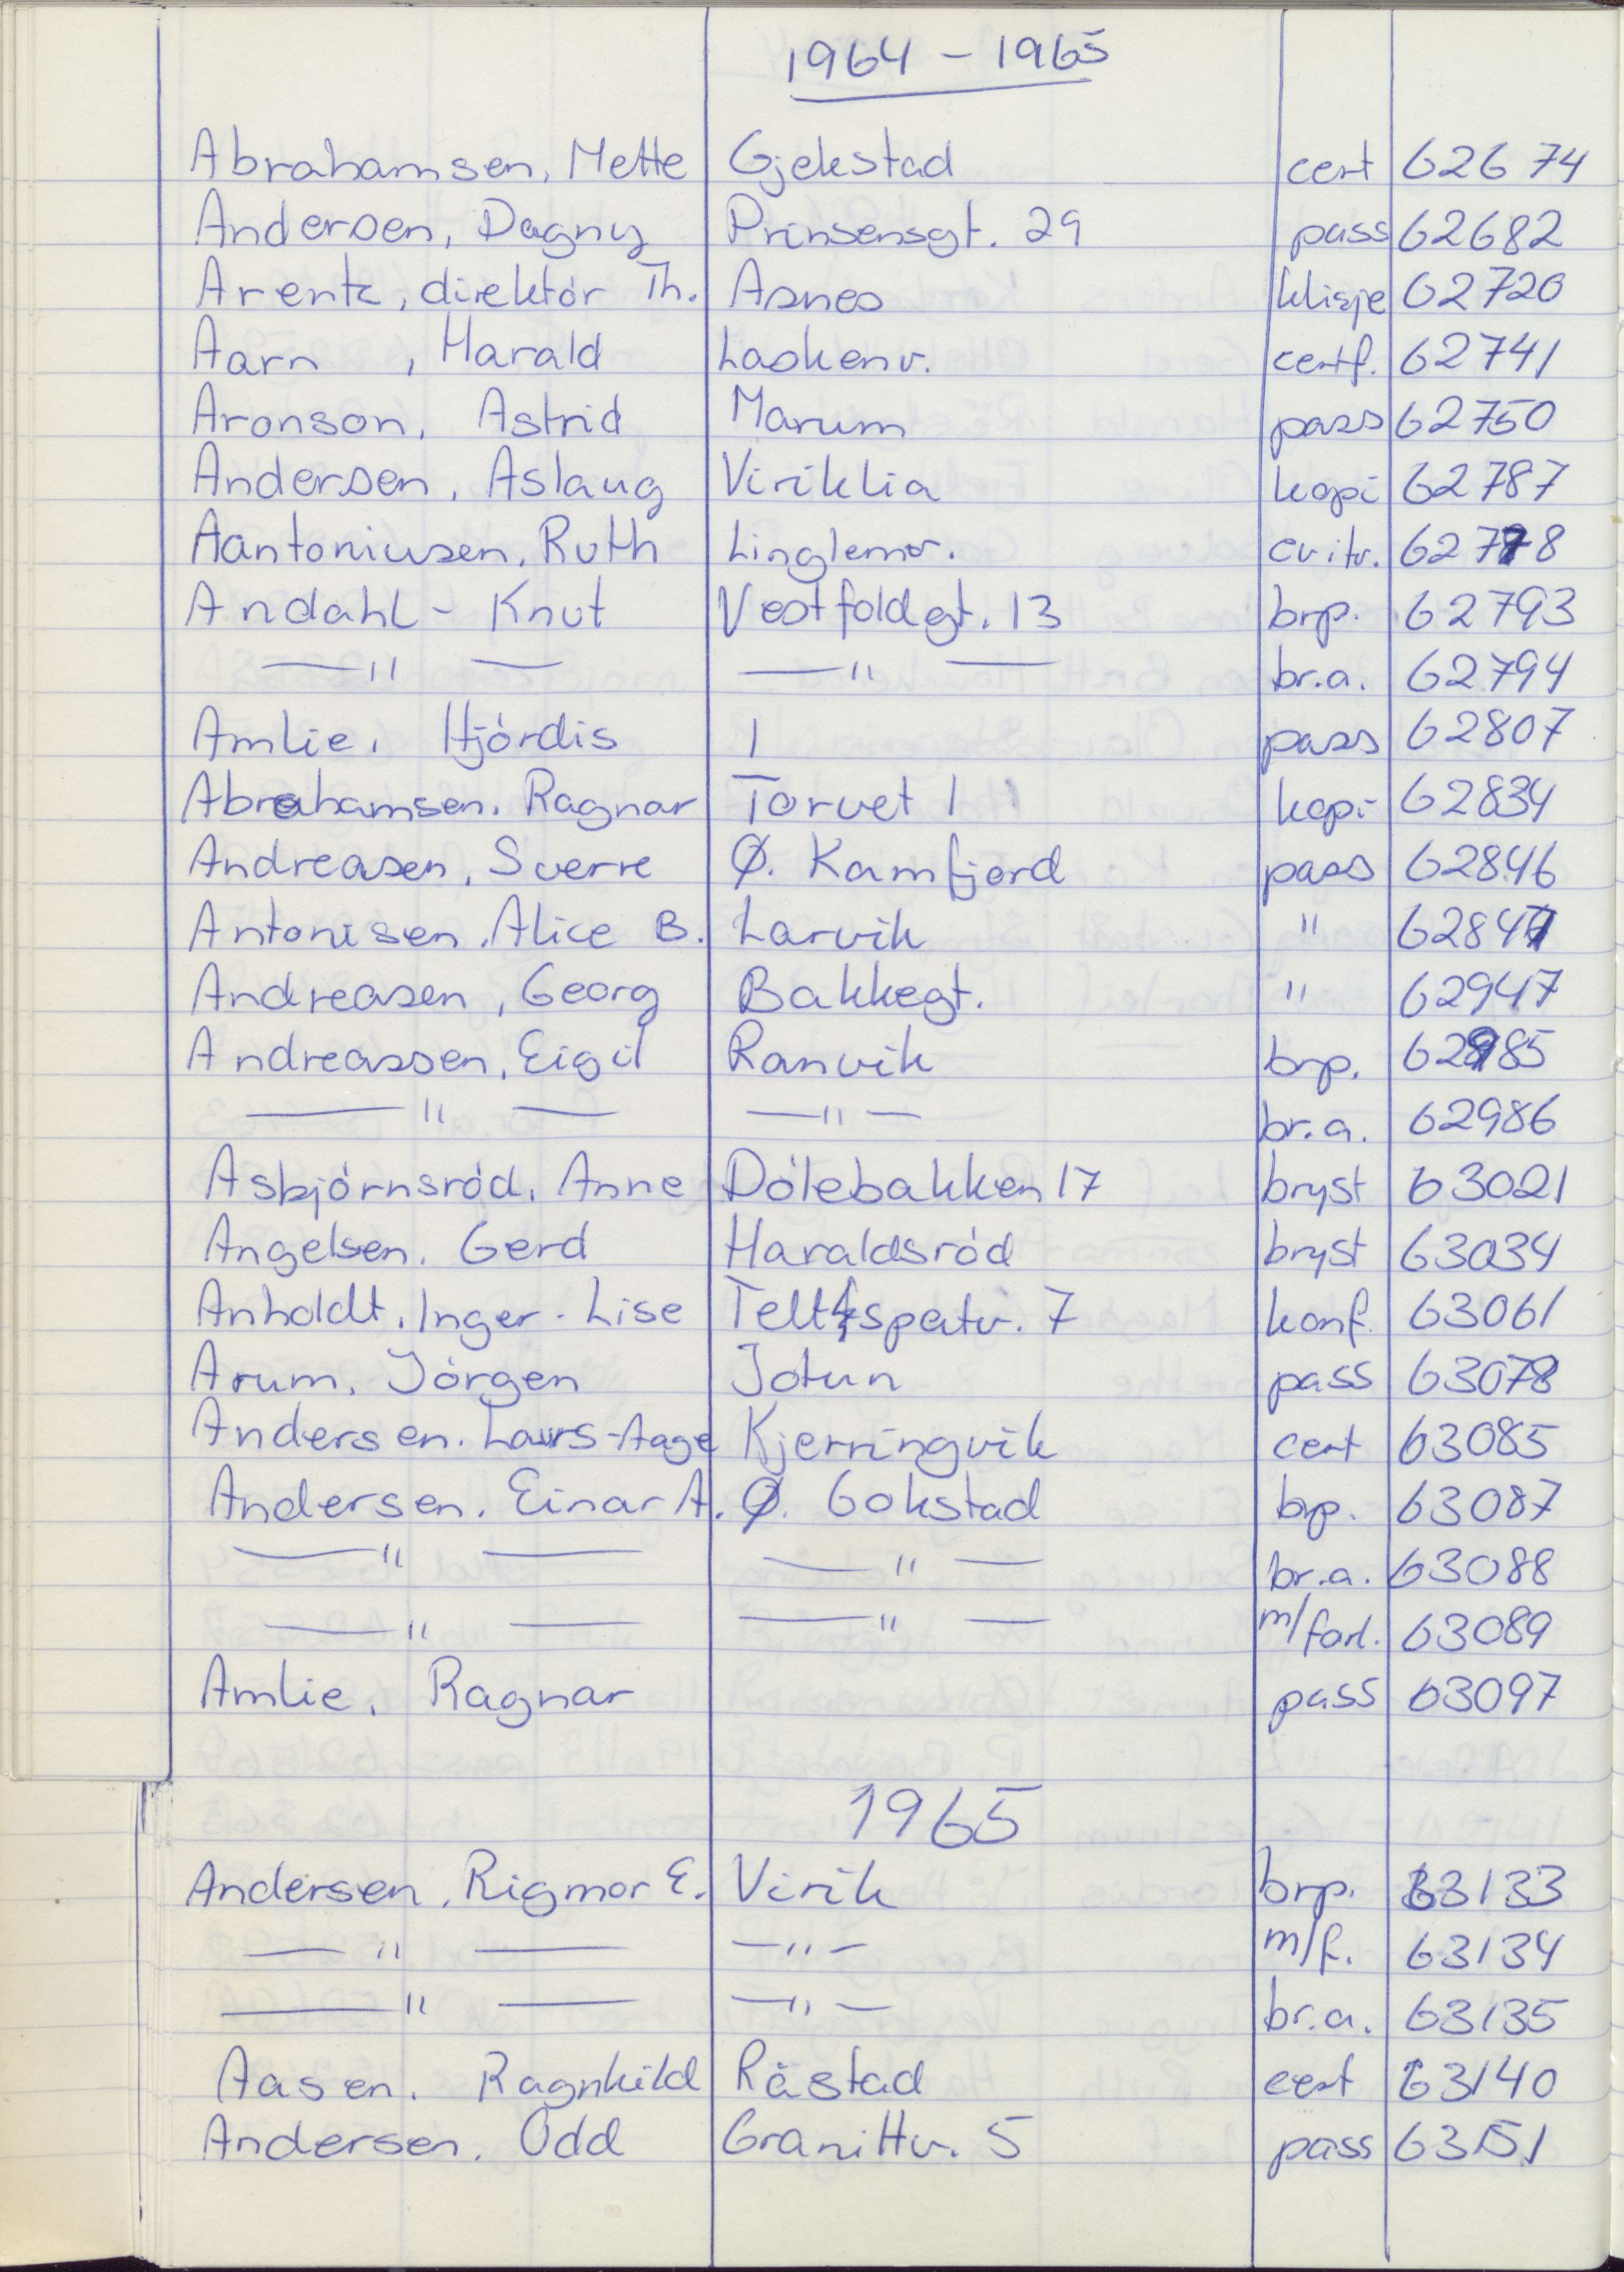 1964 - 1965
Abrahamsen, Mette Gjekstad cert 62674
Andersen, Dagny Prinsensgt. 29 pass 62682
Arentz, direktör Th. Asnes klisje 62720
Aarn , Harald Laskenv. certf. 62741
Aronson, Astrid Marum pass 62750
Andersen, Aslaug Viriklia kopi 62787
Aantoniusen, Ruth cvitv. 62778
Andahl - Knut Vestfoldgt. 13 brp. 62793
—— " —— —— " —— br.a. 62794
Amlie, Hjördis 1 pass 62807
Abrahamsen, Ragnar Torvet 1 kopi 62834
Andreasen, Sverre Ø. Kamfjord pass 62846
Antonisen, Alice B. Larvik " 62847
Andreasen, Georg Bakkegt. " 62947
Andreassen, Eigil Ranvik brp. 62985
—— " —— —— " —— br.a. 62986
Asbjörnsröd, Anne Dölebakken 17 bryst 63021
Angelsen, Gerd Haraldsröd bryst 63034
Anholdt, Inger-Lise Teltspatv. 7 konf. 63061
Arum, Jörgen Jotun pass 63078
Andersen, Lars-Aage Kjerringvik cert 63085
Andersen, Einar A. Ø. Gokstad brp. 63087
—— " —— —— " —— br.a. 63088
—— " —— —— " —— m/farl. 63089
Amlie, Ragnar pass 63097
1965
Andersen, Rigmor E. Virik brp. 63133
—— " —— —— " —— m/f. 63134
—— " —— —— " —— br.a. 63135
Aasen, Ragnhild Råstad cert 63140
Andersen, Odd Granittv. 5 pass 63151